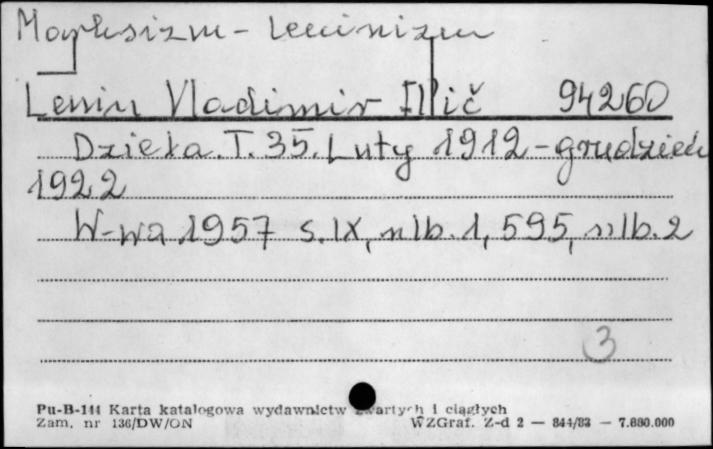 Marksizm - Leninizm
Lenin Vladimir Il'ič 94260
Dzieła. T. 35. Luty 1912 - grudzień
1922
W-wa 1957 s. IX, nlb. 1, 595, nlb. 2
3
Pu-B-144 Karta katalogowa wydawnictw zwartych i ciągłych
Zam. nr 136/DW/ON WZGraf. Z-d 2 — 844/83 — 7.880.000